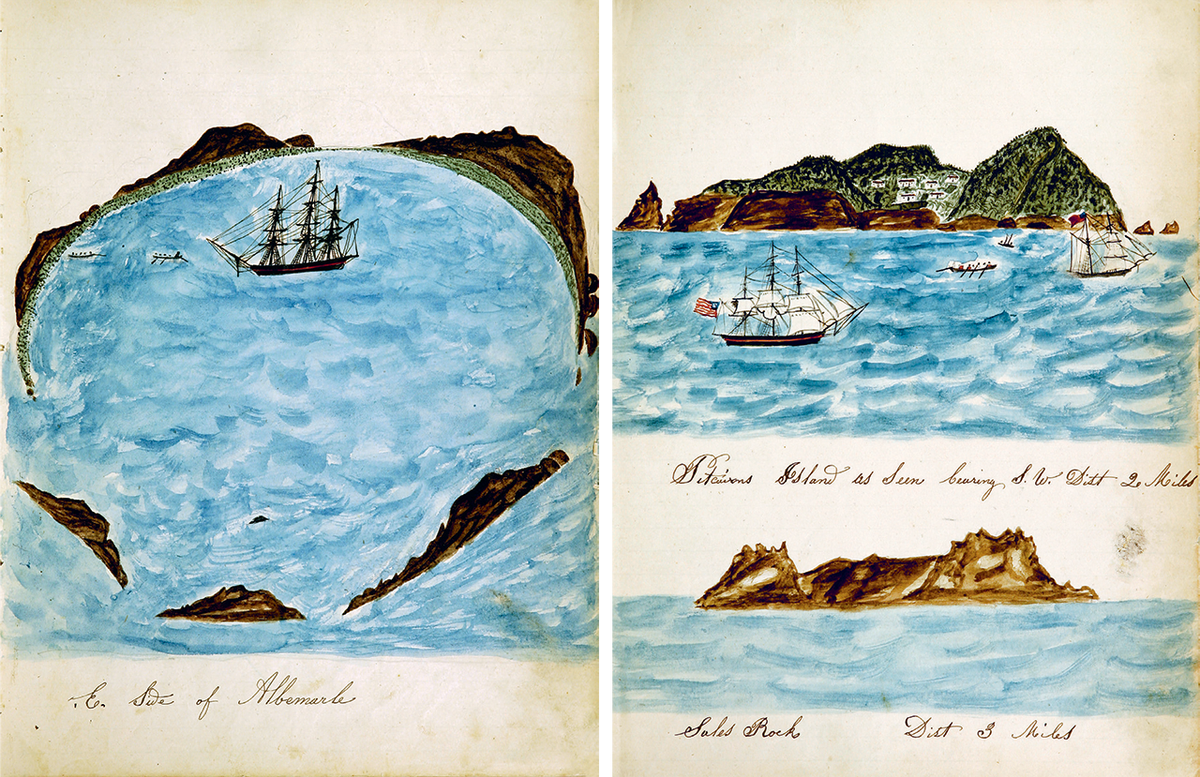 E. Side of Albemarle
Pitcairns Island as Seen bearing S. W. Dist 2 Miles
Sales Rock Dist 3 Miles